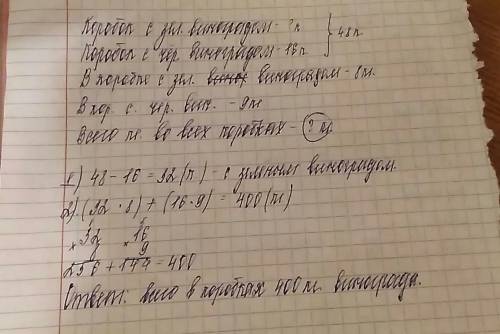 Коробок с зел. виноградом - ?к } 48к
Коробок с чер. виноградом - 16к
В коробке с зел. виноградом - 8кг.
В кор. с. чер. вин. - 9кг
Всего кг. во всех коробках - ? кг.
1) 48 - 16 = 32 (к) - с зеленым виноградом.
2) (32 · 8) + (16 · 9) = 400 (кг)
× 32 × 16
8 9
256 + 144 = 400
Ответ: всего в коробках 400 кг. винограда.